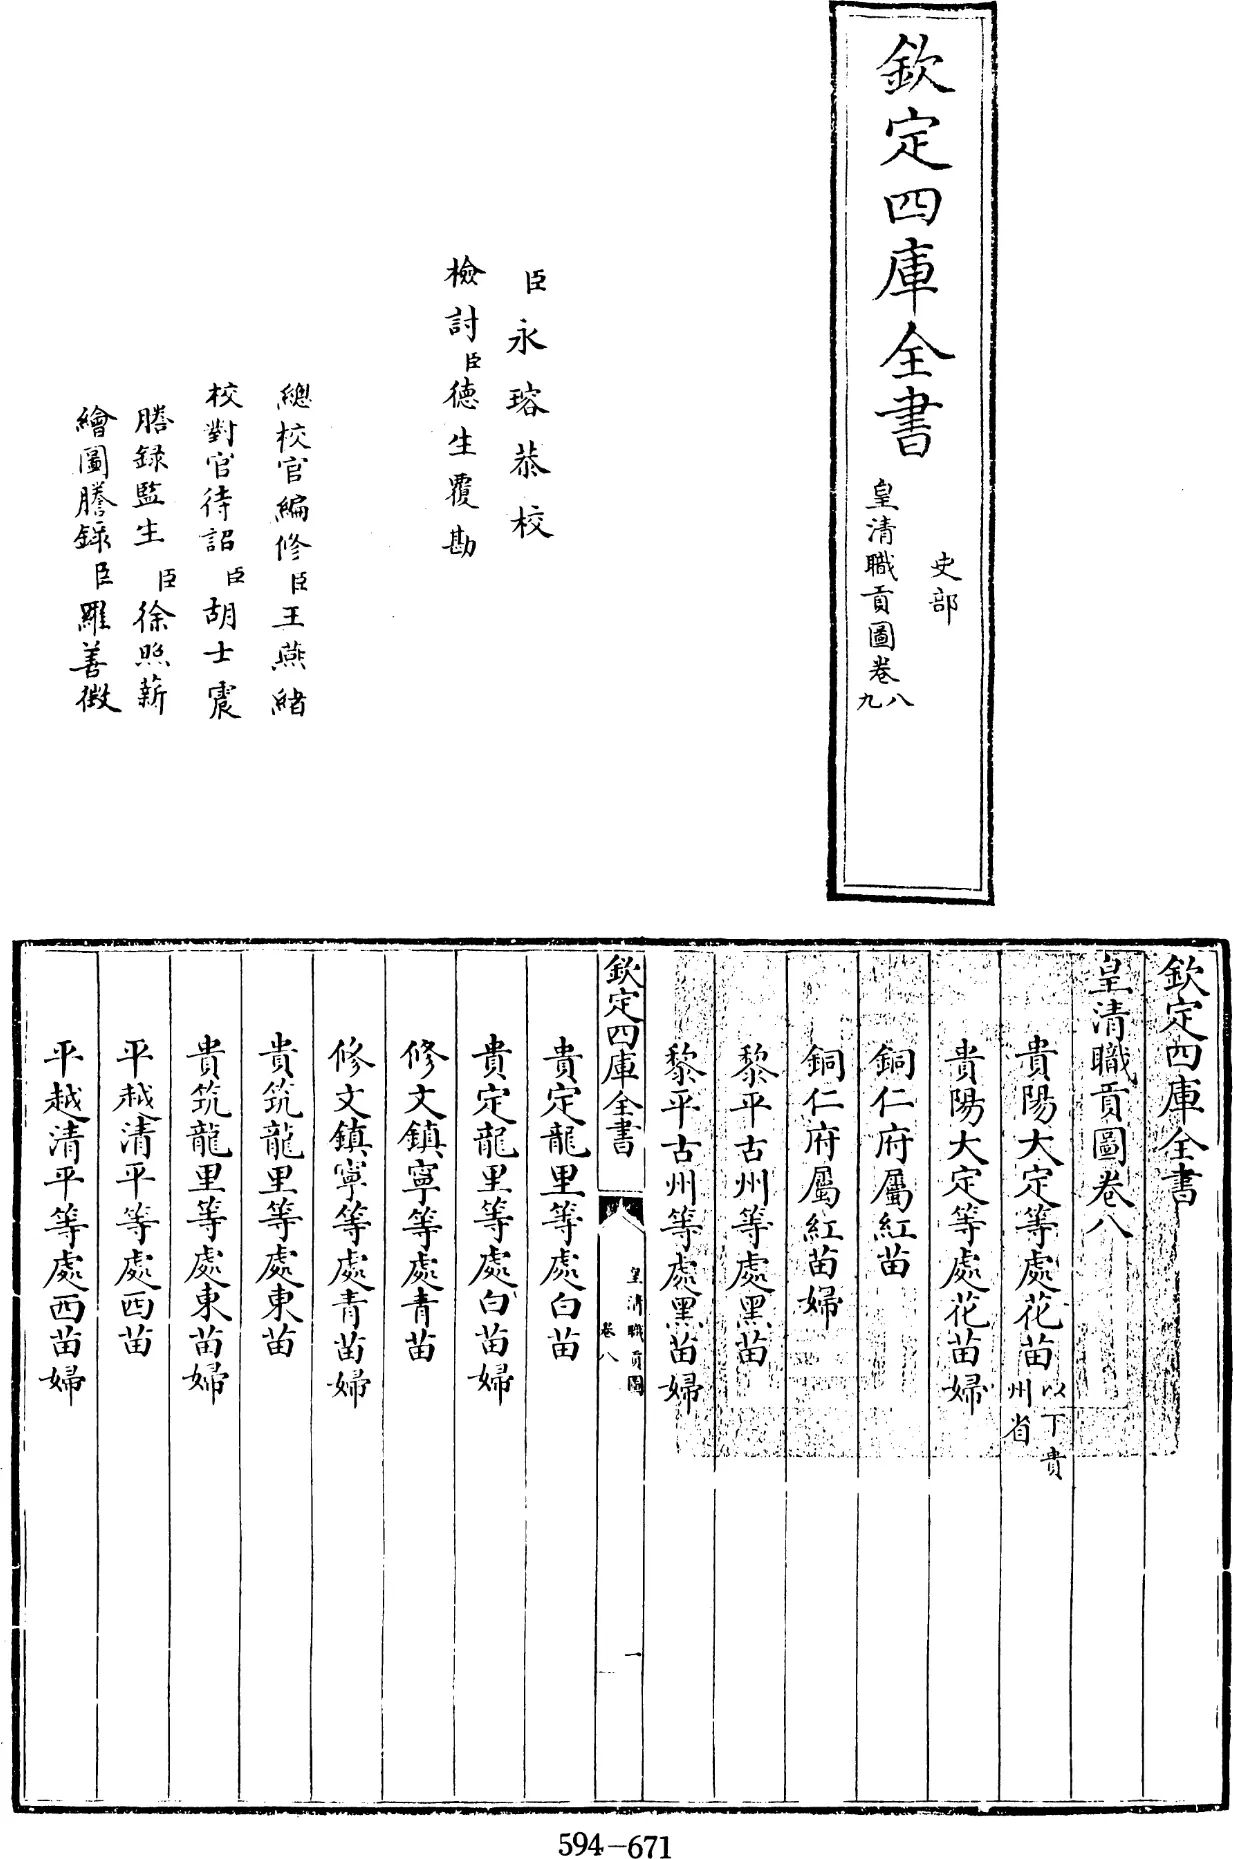 欽定四庫全書
史部
皇清職貢圖卷八九
臣永瑢恭校
檢討臣德生覆勘
總校官編修臣王燕緒
校對官待詔臣胡士震
謄録監生臣徐照薪
繪圖謄録臣羅善徵
欽定四庫全書
皇清職貢圖卷八
貴陽大定等處花苗以下貴州省
貴陽大定等處花苗婦
銅仁府屬紅苗
銅仁府屬紅苗婦
黎平古州等處黑苗
黎平古州等處黑苗婦
欽定四庫全書
皇清職貢圖
卷八
一
貴定龍里等處白苗
貴定龍里等處白苗婦
修文鎮寧等處青苗
修文鎮寧等處青苗婦
貴筑龍里等處東苗
貴筑龍里等處東苗婦
平越清平等處西苗
平越清平等處西苗婦
594-671